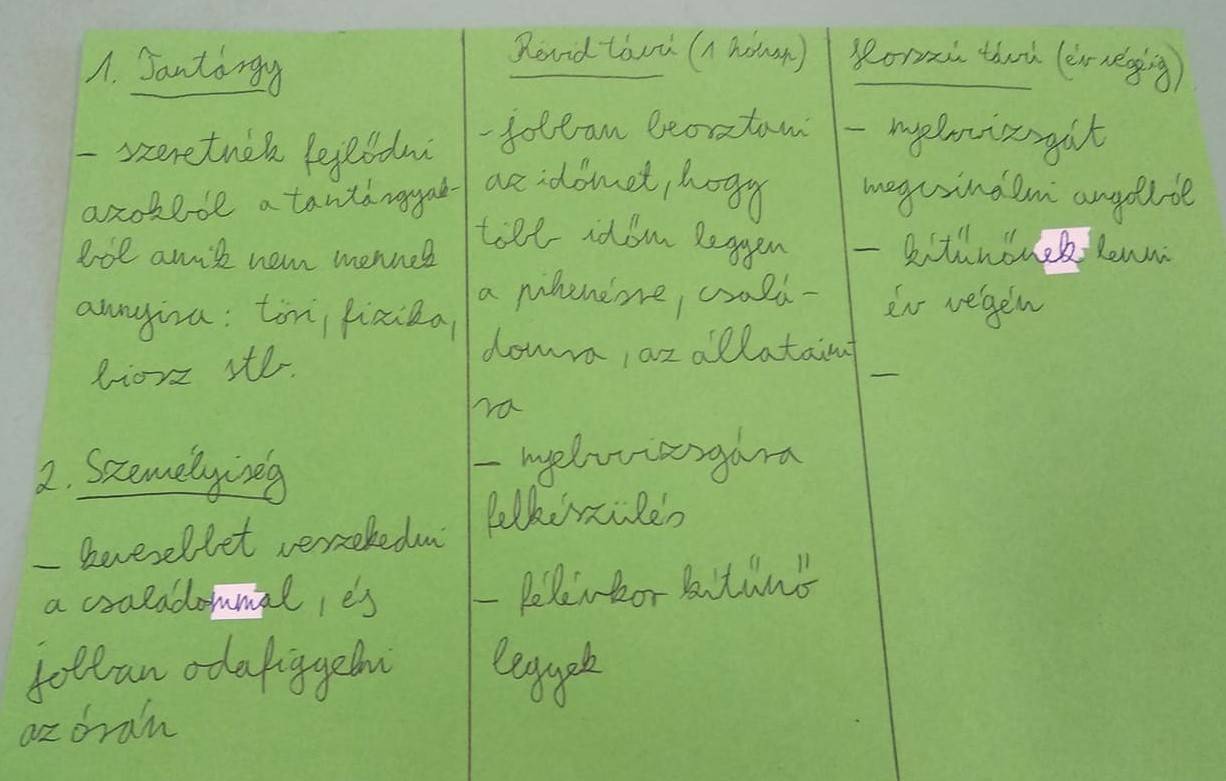 1. Tantárgy
- szeretnék fejlődni
azokból a tantárgyak-
ból amik nem mennek
annyira: töri, fizika,
biosz stb.
2. Személyiség
- kevesebbet veszekedni
a családommal, és
jobban odafigyelni
az órán
Rövid távú (1 hónap)
- jobban beosztani
az időmet, hogy
több időm legyen
a pihenésre, csalá-
domra, az állataim
ra
- nyelvvizsgára
felkészülés
- félévkor kitűnő
legyek
Hosszú távú (év végéig)
- nyelvvizsgát
megcsinálni angolból
- kitűnőnek lenni
év végén
-